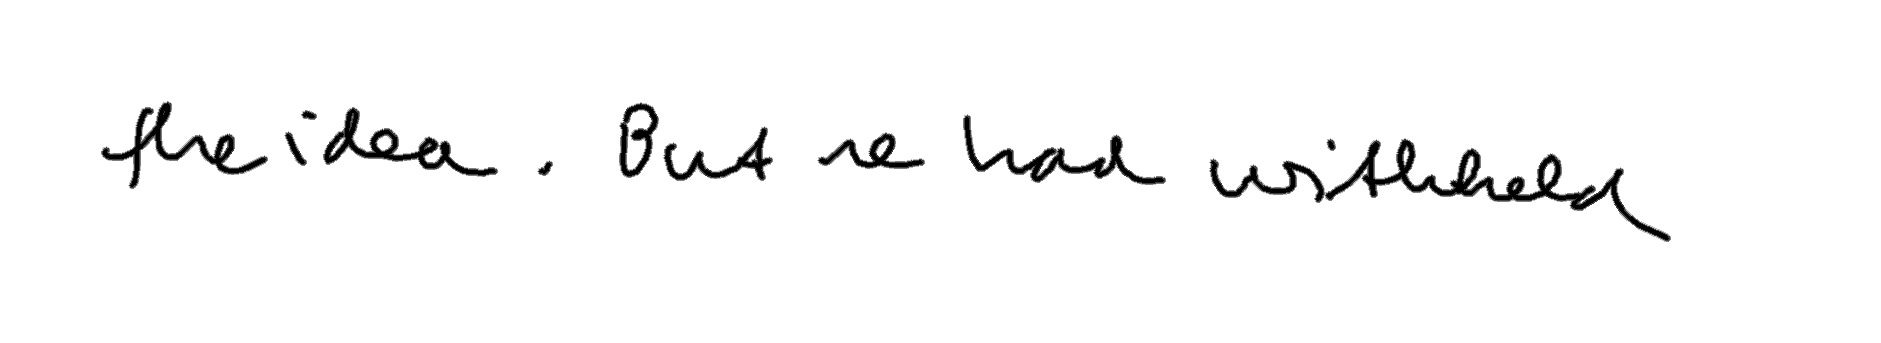 the idea. But he had withheld